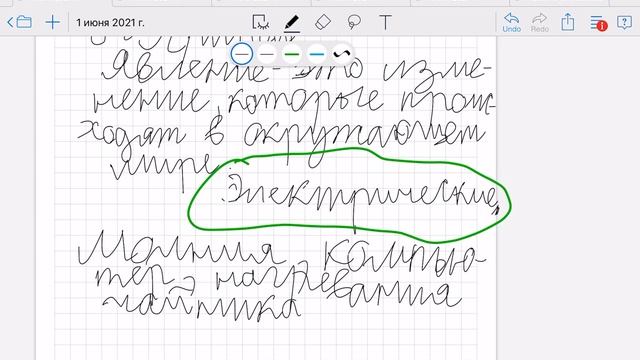 1 июня 2021 г.
T
Undo
Redo
Явление - это изме-
нение, которые проис-
ходят в окружающем
мире
Электрические,
Молния, компью-
тер, нагревания
чайника